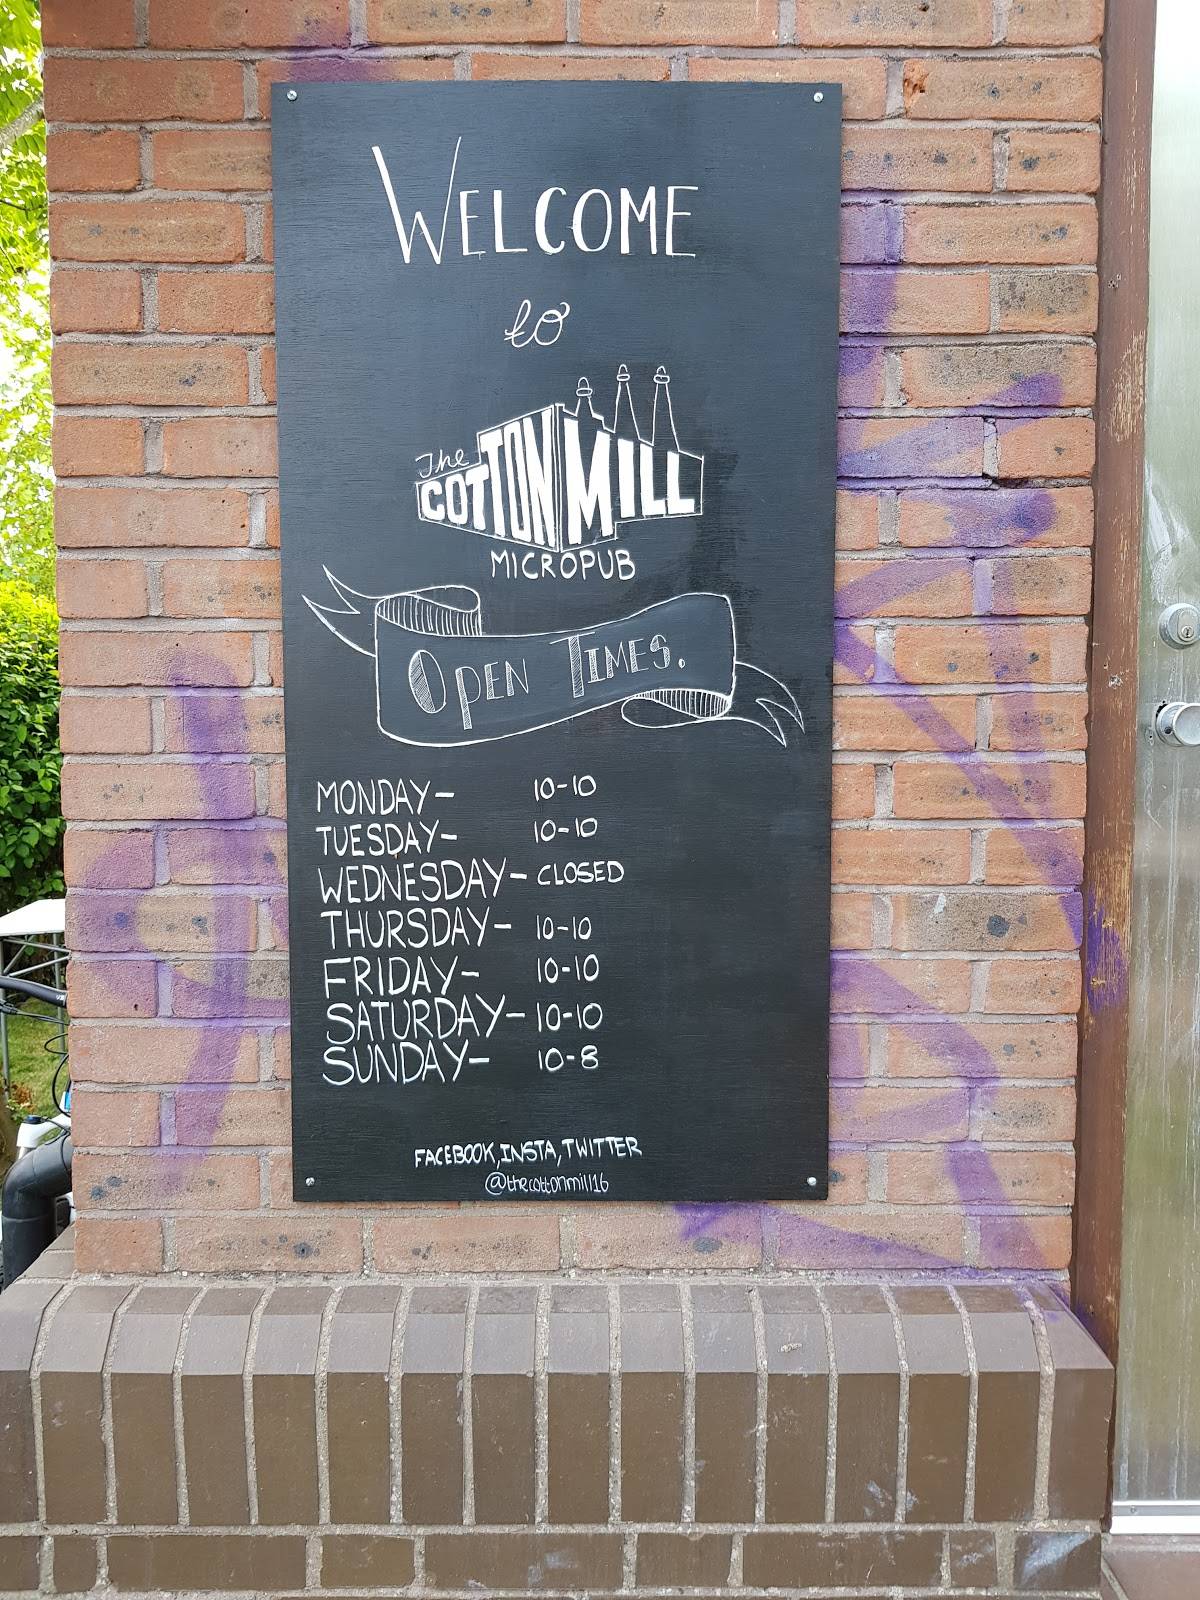 WELCOME
to
The
COTTON MILL
MICROPUB
OPEN TIMES.
MONDAY- 10-10
TUESDAY- 10-10
WEDNESDAY- CLOSED
THURSDAY- 10-10
FRIDAY- 10-10
SATURDAY- 10-10
SUNDAY- 10-8
FACEBOOK, INSTA, TWITTER
@thecottonmill16